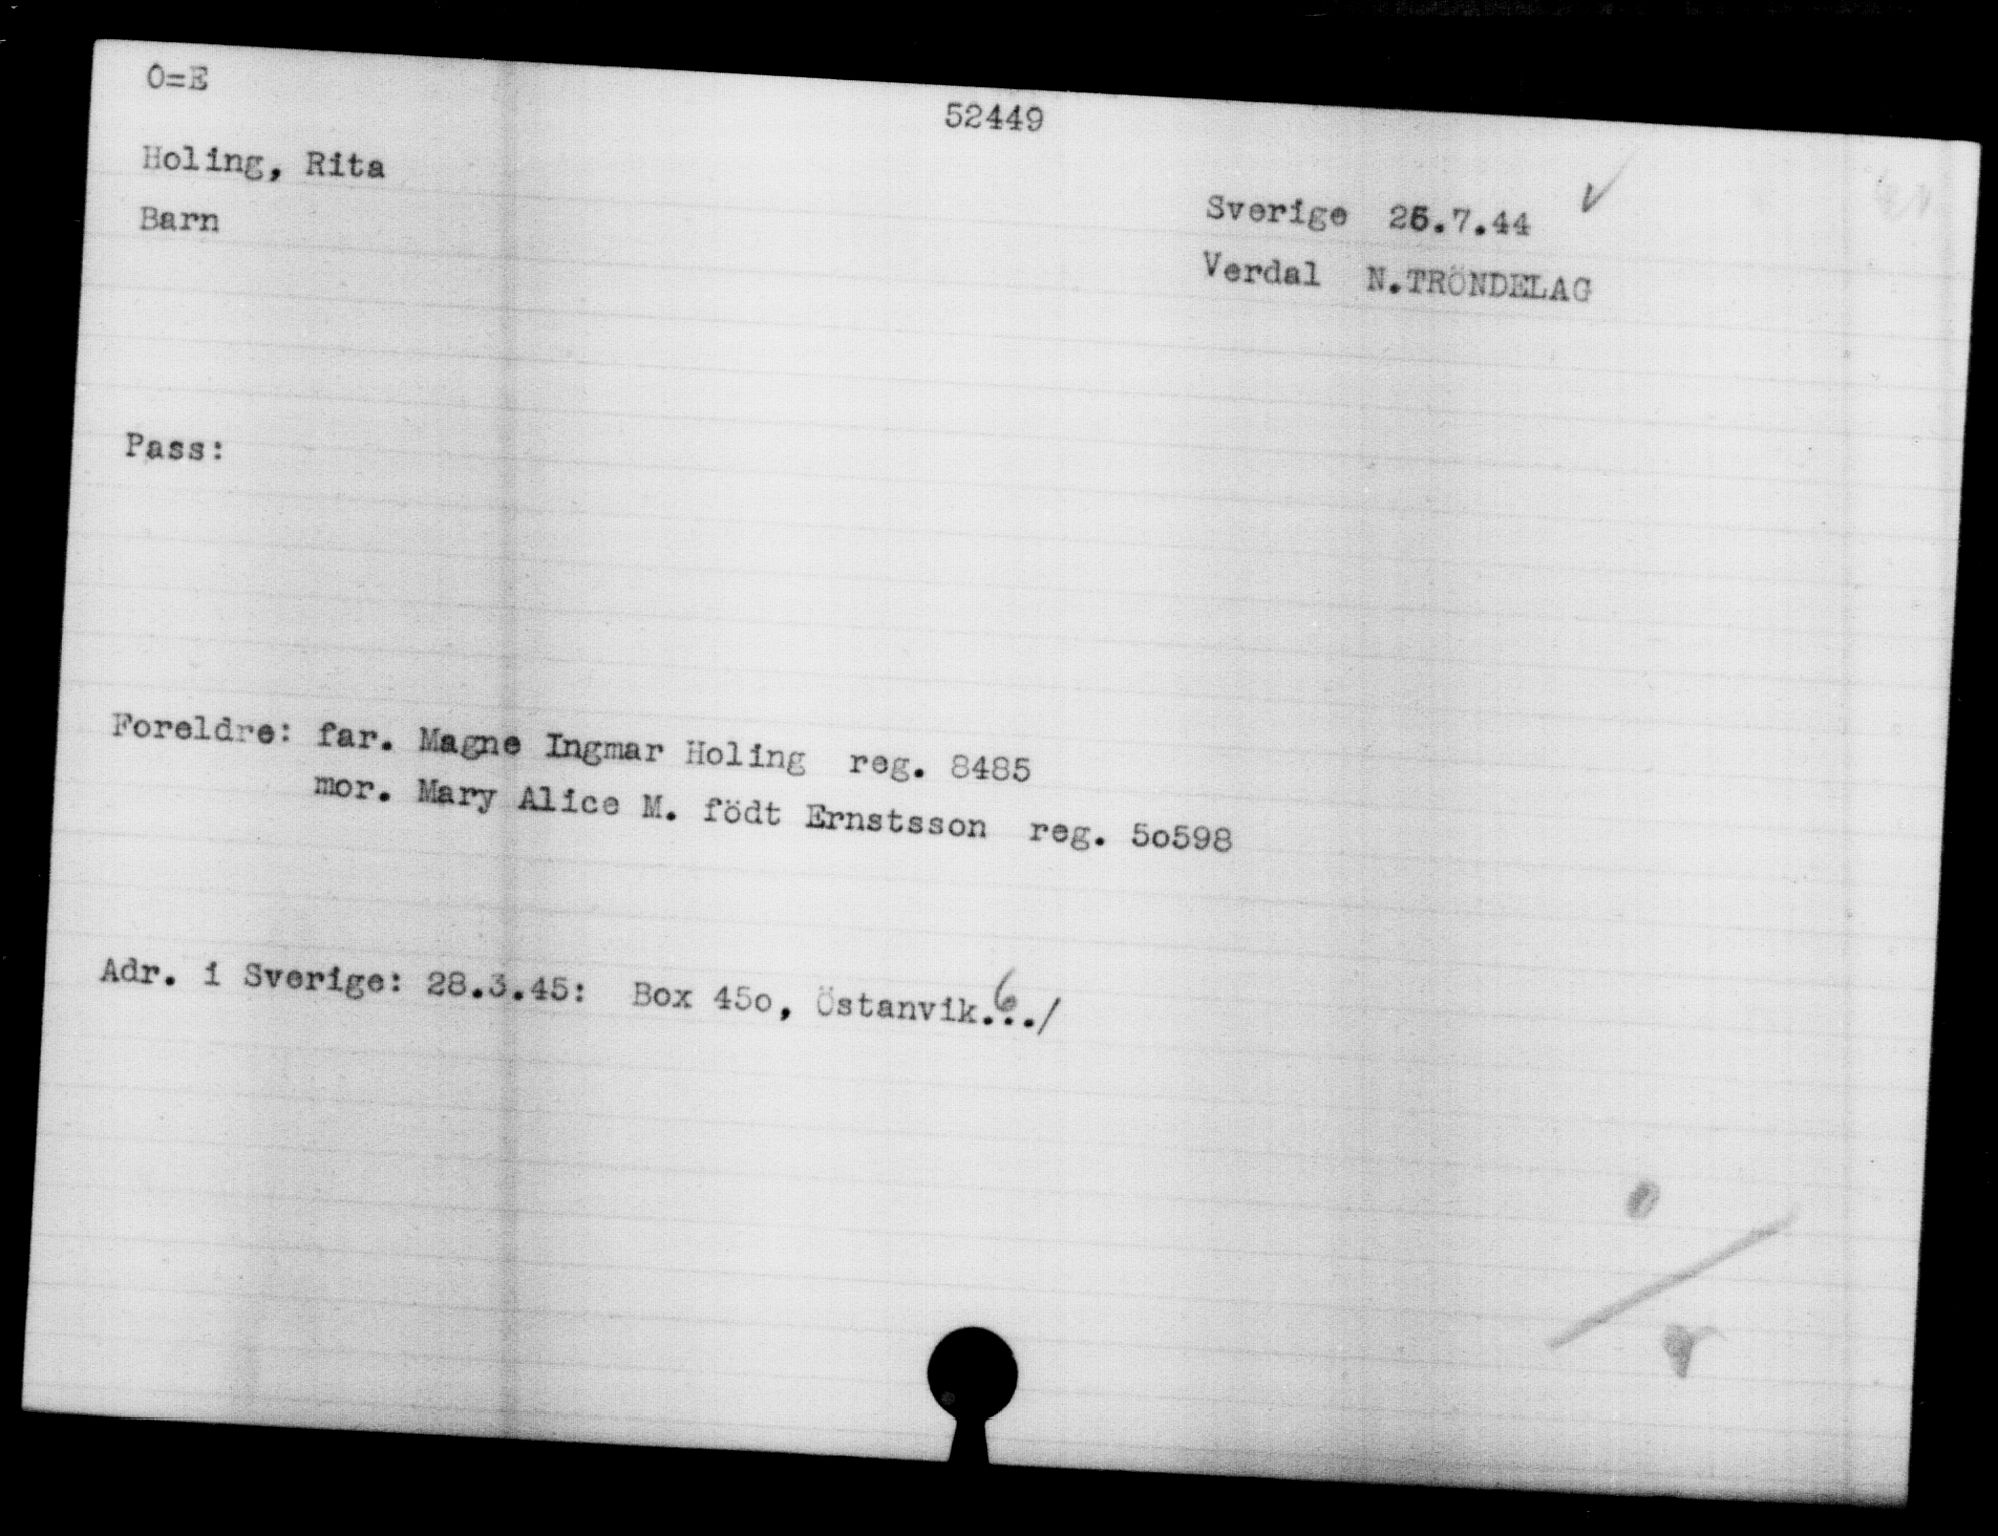 O=E
52449
Holing, Rita
Barn
Sverige 26.7.44 ✓
Verdal N.TRÖNDELAG
Pass:
Foreldre: far. Magne Ingmar Holing reg. 8485
mor. Mary Alice M. födt Ernstsson reg. 5o598
Adr. i Sverige: 28.3.45: Box 45o, Östanvik.../
6